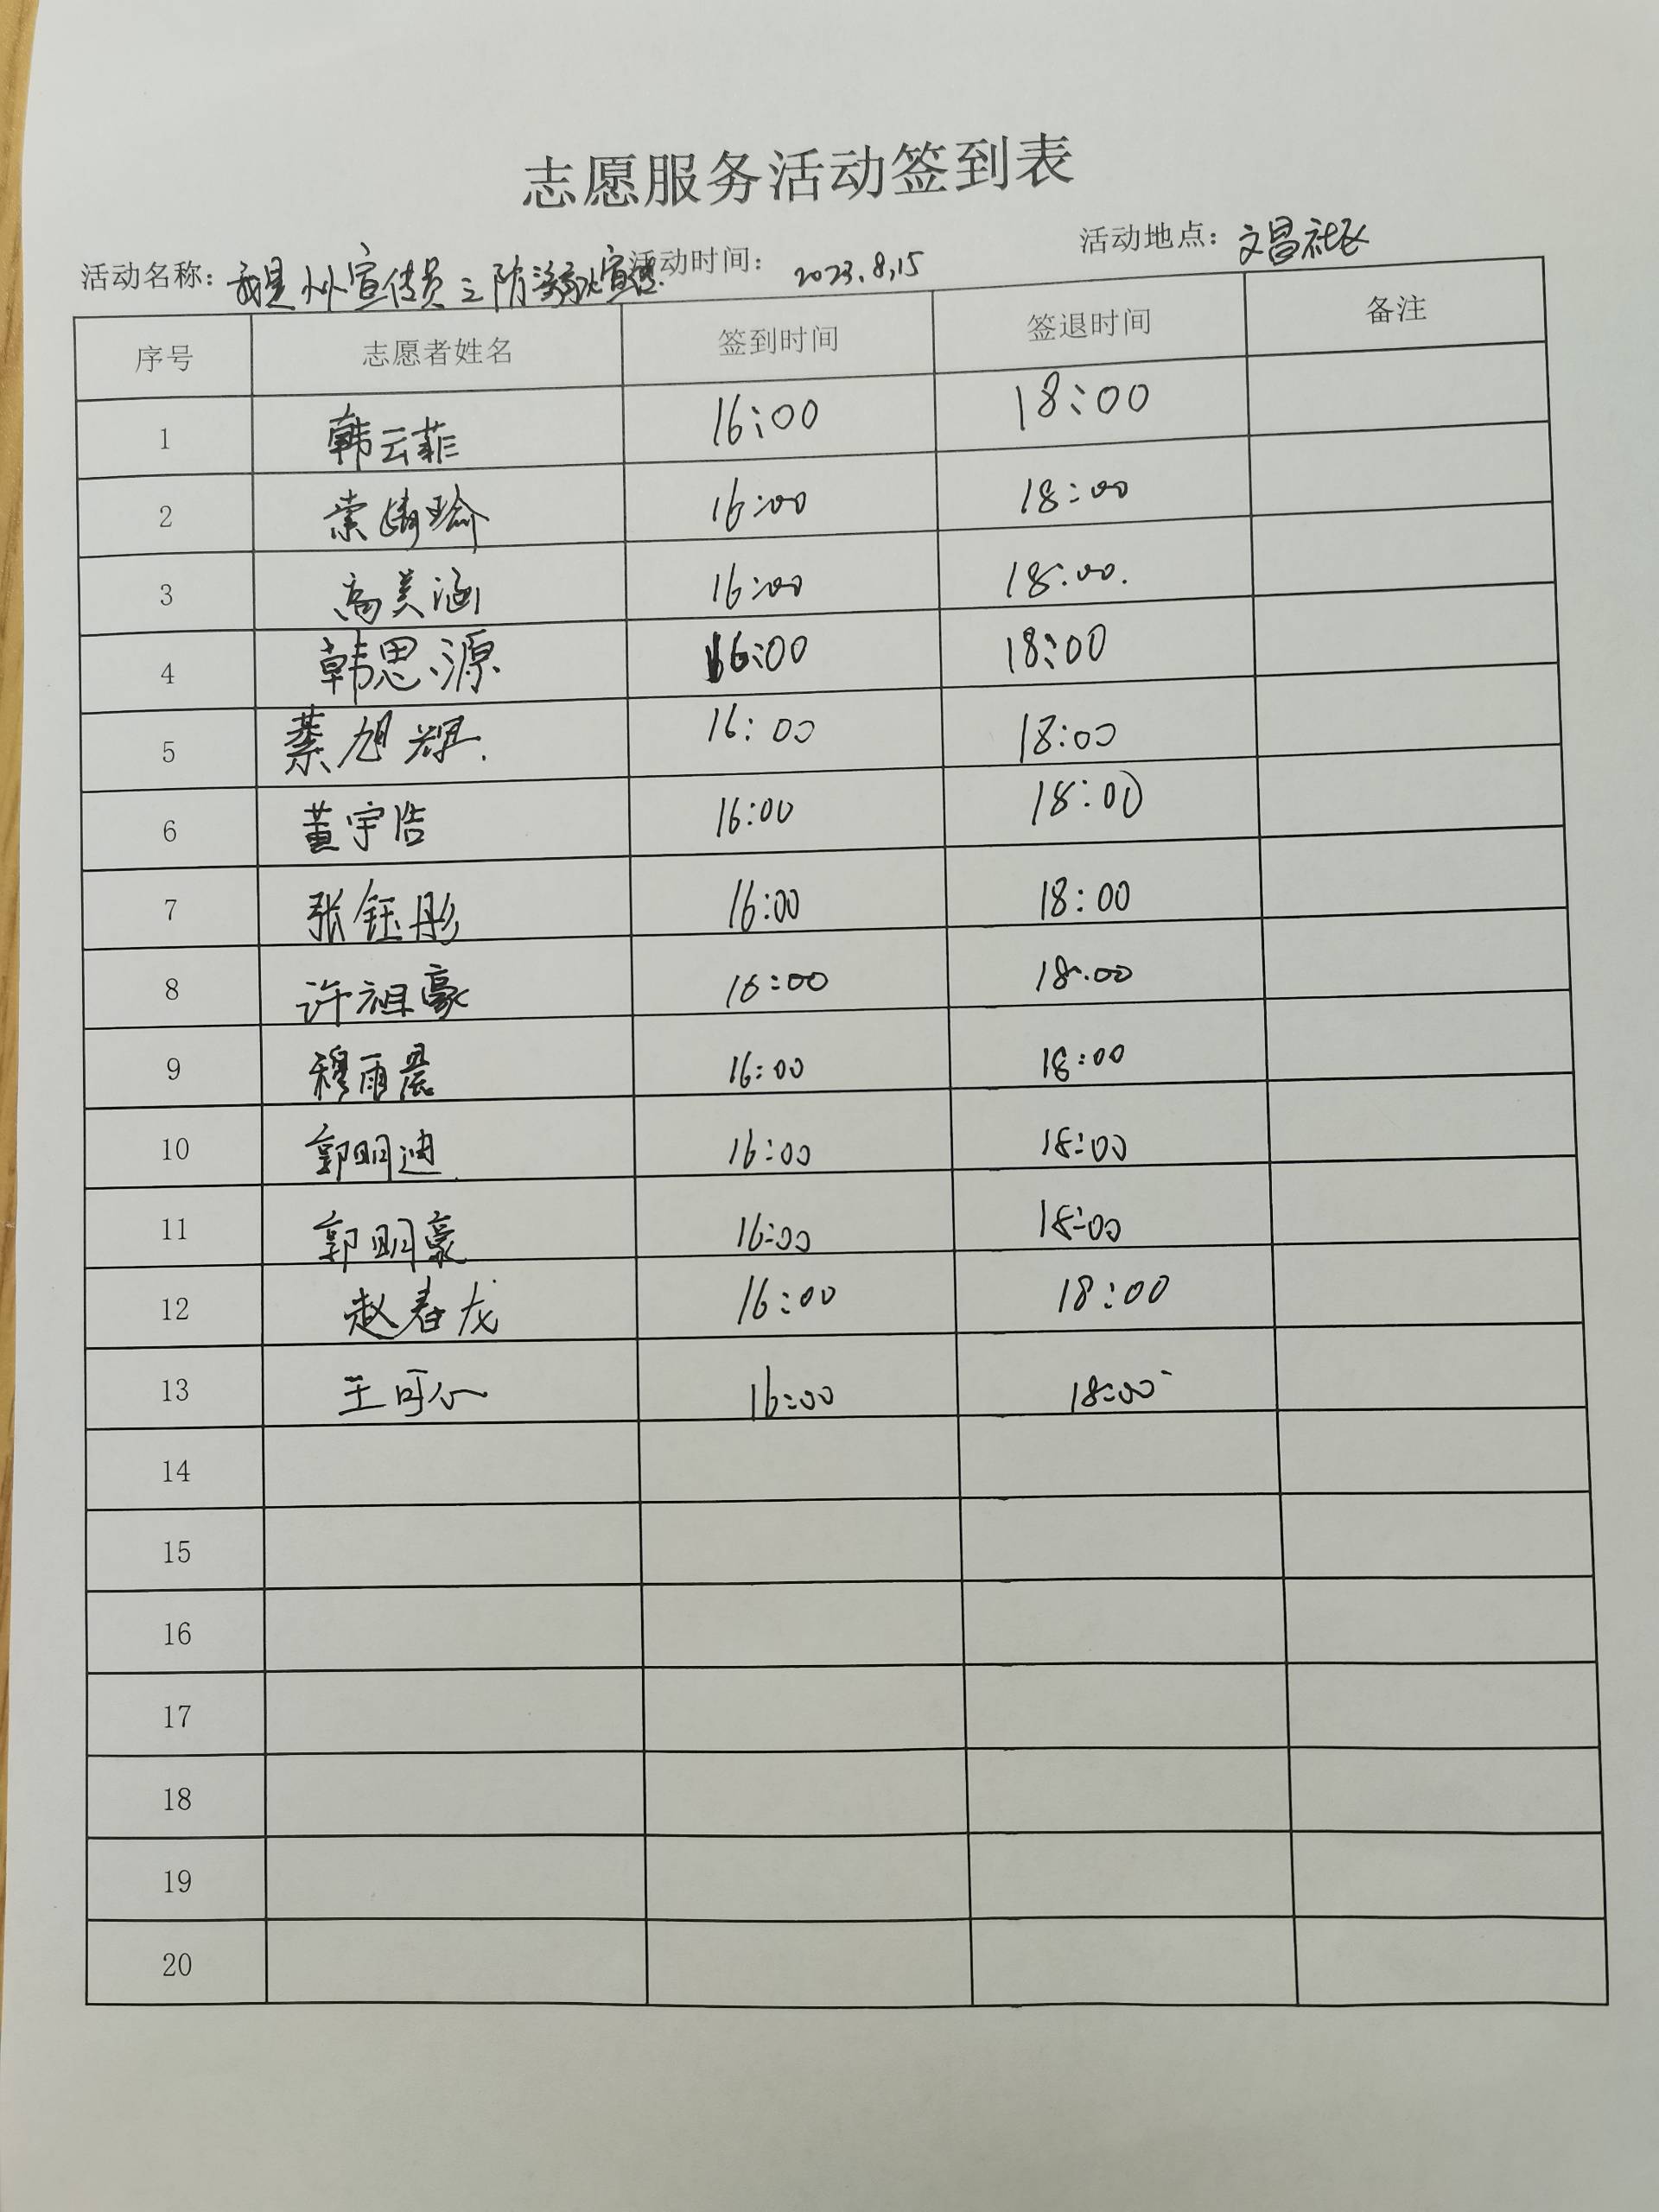 志愿服务活动签到表
活动名称：我是小小宣传员之防溺水宣传 活动时间：2023.8.15 活动地点：文昌社区
序号 志愿者姓名 签到时间 签退时间 备注
1 韩云菲 16:00 18:00
2 索婧瑜 16:00 18:00
3 高美涵 16:00 18:00.
4 韩思源 16:00 18:00
5 蔡旭辉. 16:00 18:00
6 董宇浩 16:00 18:00
7 张钰彤 16:00 18:00
8 许祖豪 16:00 18:00
9 穆雨晨 16:00 18:00
10 郭明迪 16:00 18:00
11 郭明豪 16:00 18:00
12 赵春龙 16:00 18:00
13 王可心 16:00 18:00
14
15
16
17
18
19
20